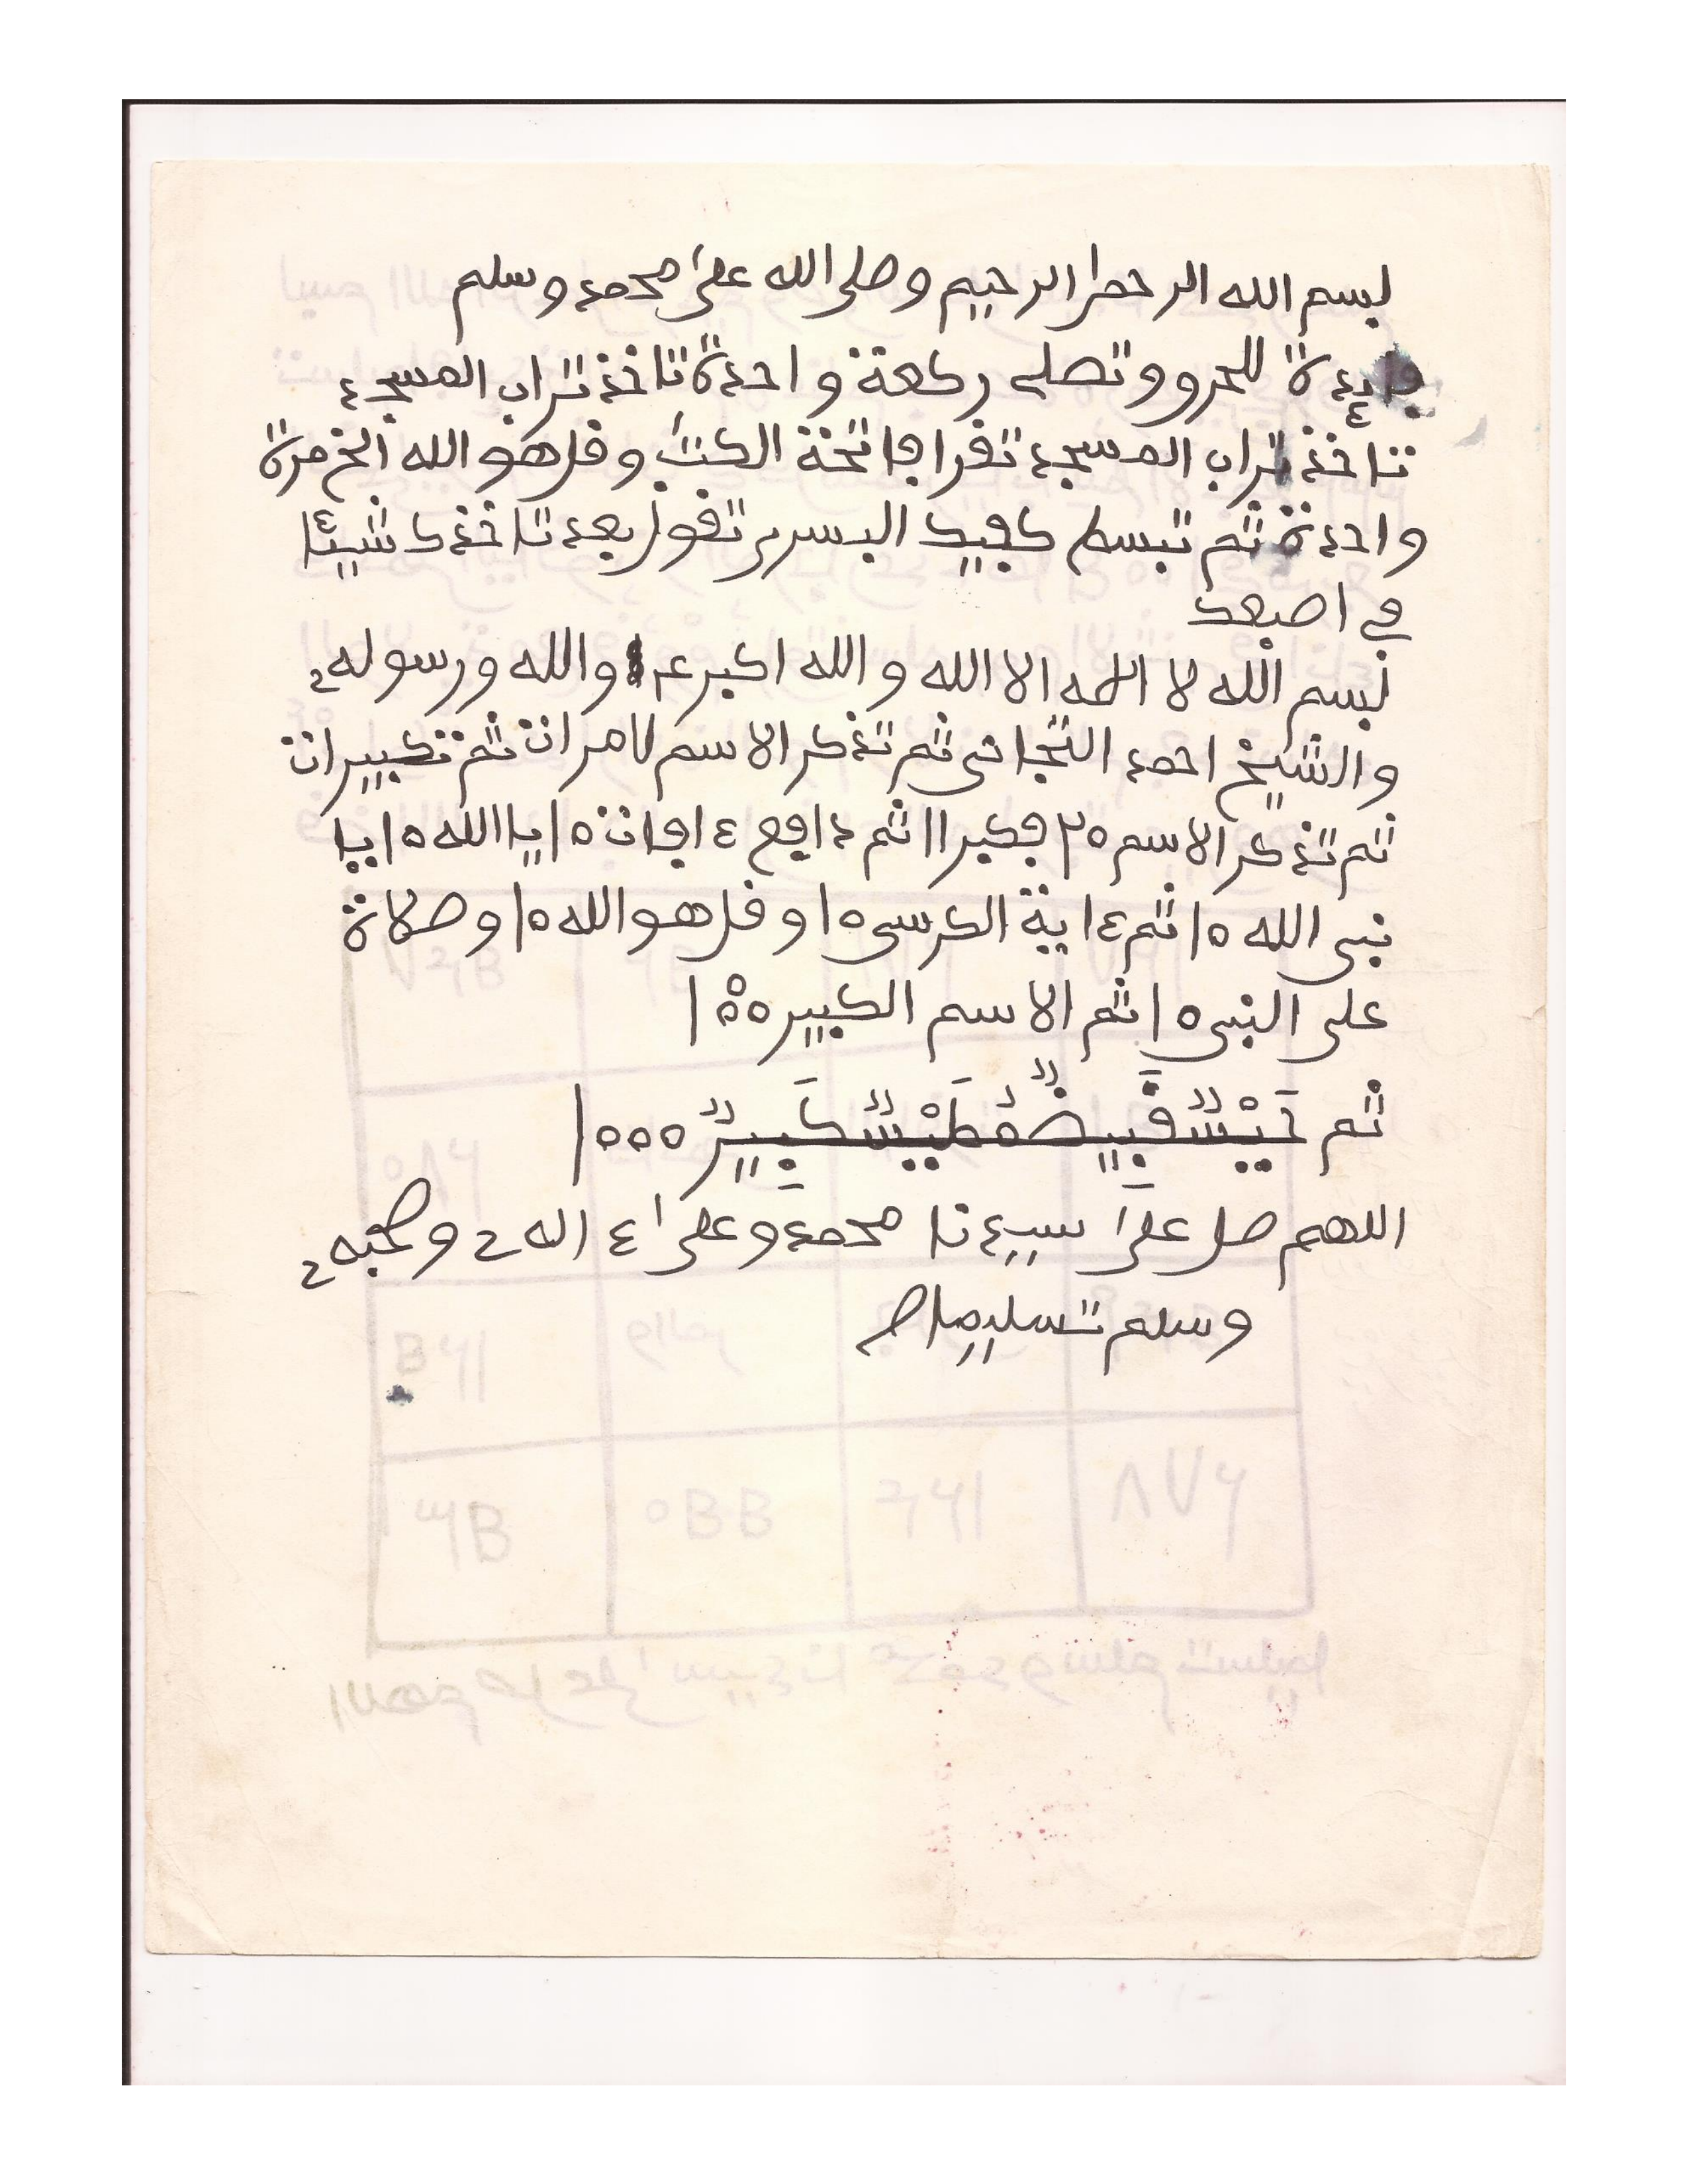 بسم الله الرحمن الرحيم وصلى الله على محمد وسلم
فايدة للحرو وتصلى ركعة واحدة تاخذ تراب المسجد
تاخذ تراب المسجد تقرا فاتحة الكتب وقل هو الله الخ مرة
واحدة ثم تبسط كفيك اليسرى تقول بعد تاخذك شيئا
في اصبعك
بسم الله لا اله الا الله والله اكبر والله ورسوله
والشيخ احمد التجانى ثم تذكر الاسم مرات ثم تكبيرات
ثم تذكر الاسم ٢٥ فكبر ١١ ثم دافع ءافات ١٥ يا الله ١٥ يا
نبى الله ١٥ ثم ءاية الكرسى ١٥ وقل هو الله ١٥ وصلاة
على النبى ١٥ ثم الاسم الكبير ١٥٥
ثم ١٥٥٥
اللهم صل على سيدنا محمد وعلى ءاله وصحبه
وسلم تسليما